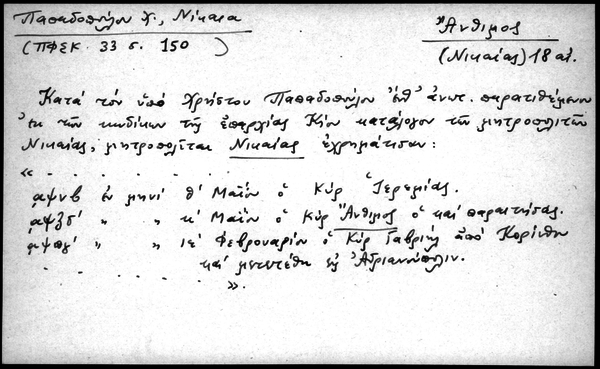 Παπαδοπούλου Χ., Νίκαια
(ΠΦΣΚ 33 σ. 150)
Ἄνθιμος
(Νικαίας) 18 αἰ.
Κατά τόν ὑπό Χρήστου Παπαδοπούλου ἐνθ' ἀνωτ. παρατιθέμενον
ἐκ τῶν κωδίκων τῆς ἐπαρχίας Κίου κατάλογον τῶν μητροπολιτῶν
Νικαίας, μητροπολῖται Νικαίας ἐχρημάτισαν:
« . . . . . .
͵αψνβ ἐν μηνί θ' Μαΐου ὁ Κύρ Ἱερεμίας.
͵αψξϛ' " " κ' Μαΐου ὁ Κύρ Ἄνθιμος ὁ καί παραιτήσας.
͵αψπγ' " " ιε' Φεβρουαρίου ὁ Κύρ Γαβριήλ ἀπό Κορίνθου
. . . . . . καί μετετέθη εἰς Ἀδριανούπολιν.
».